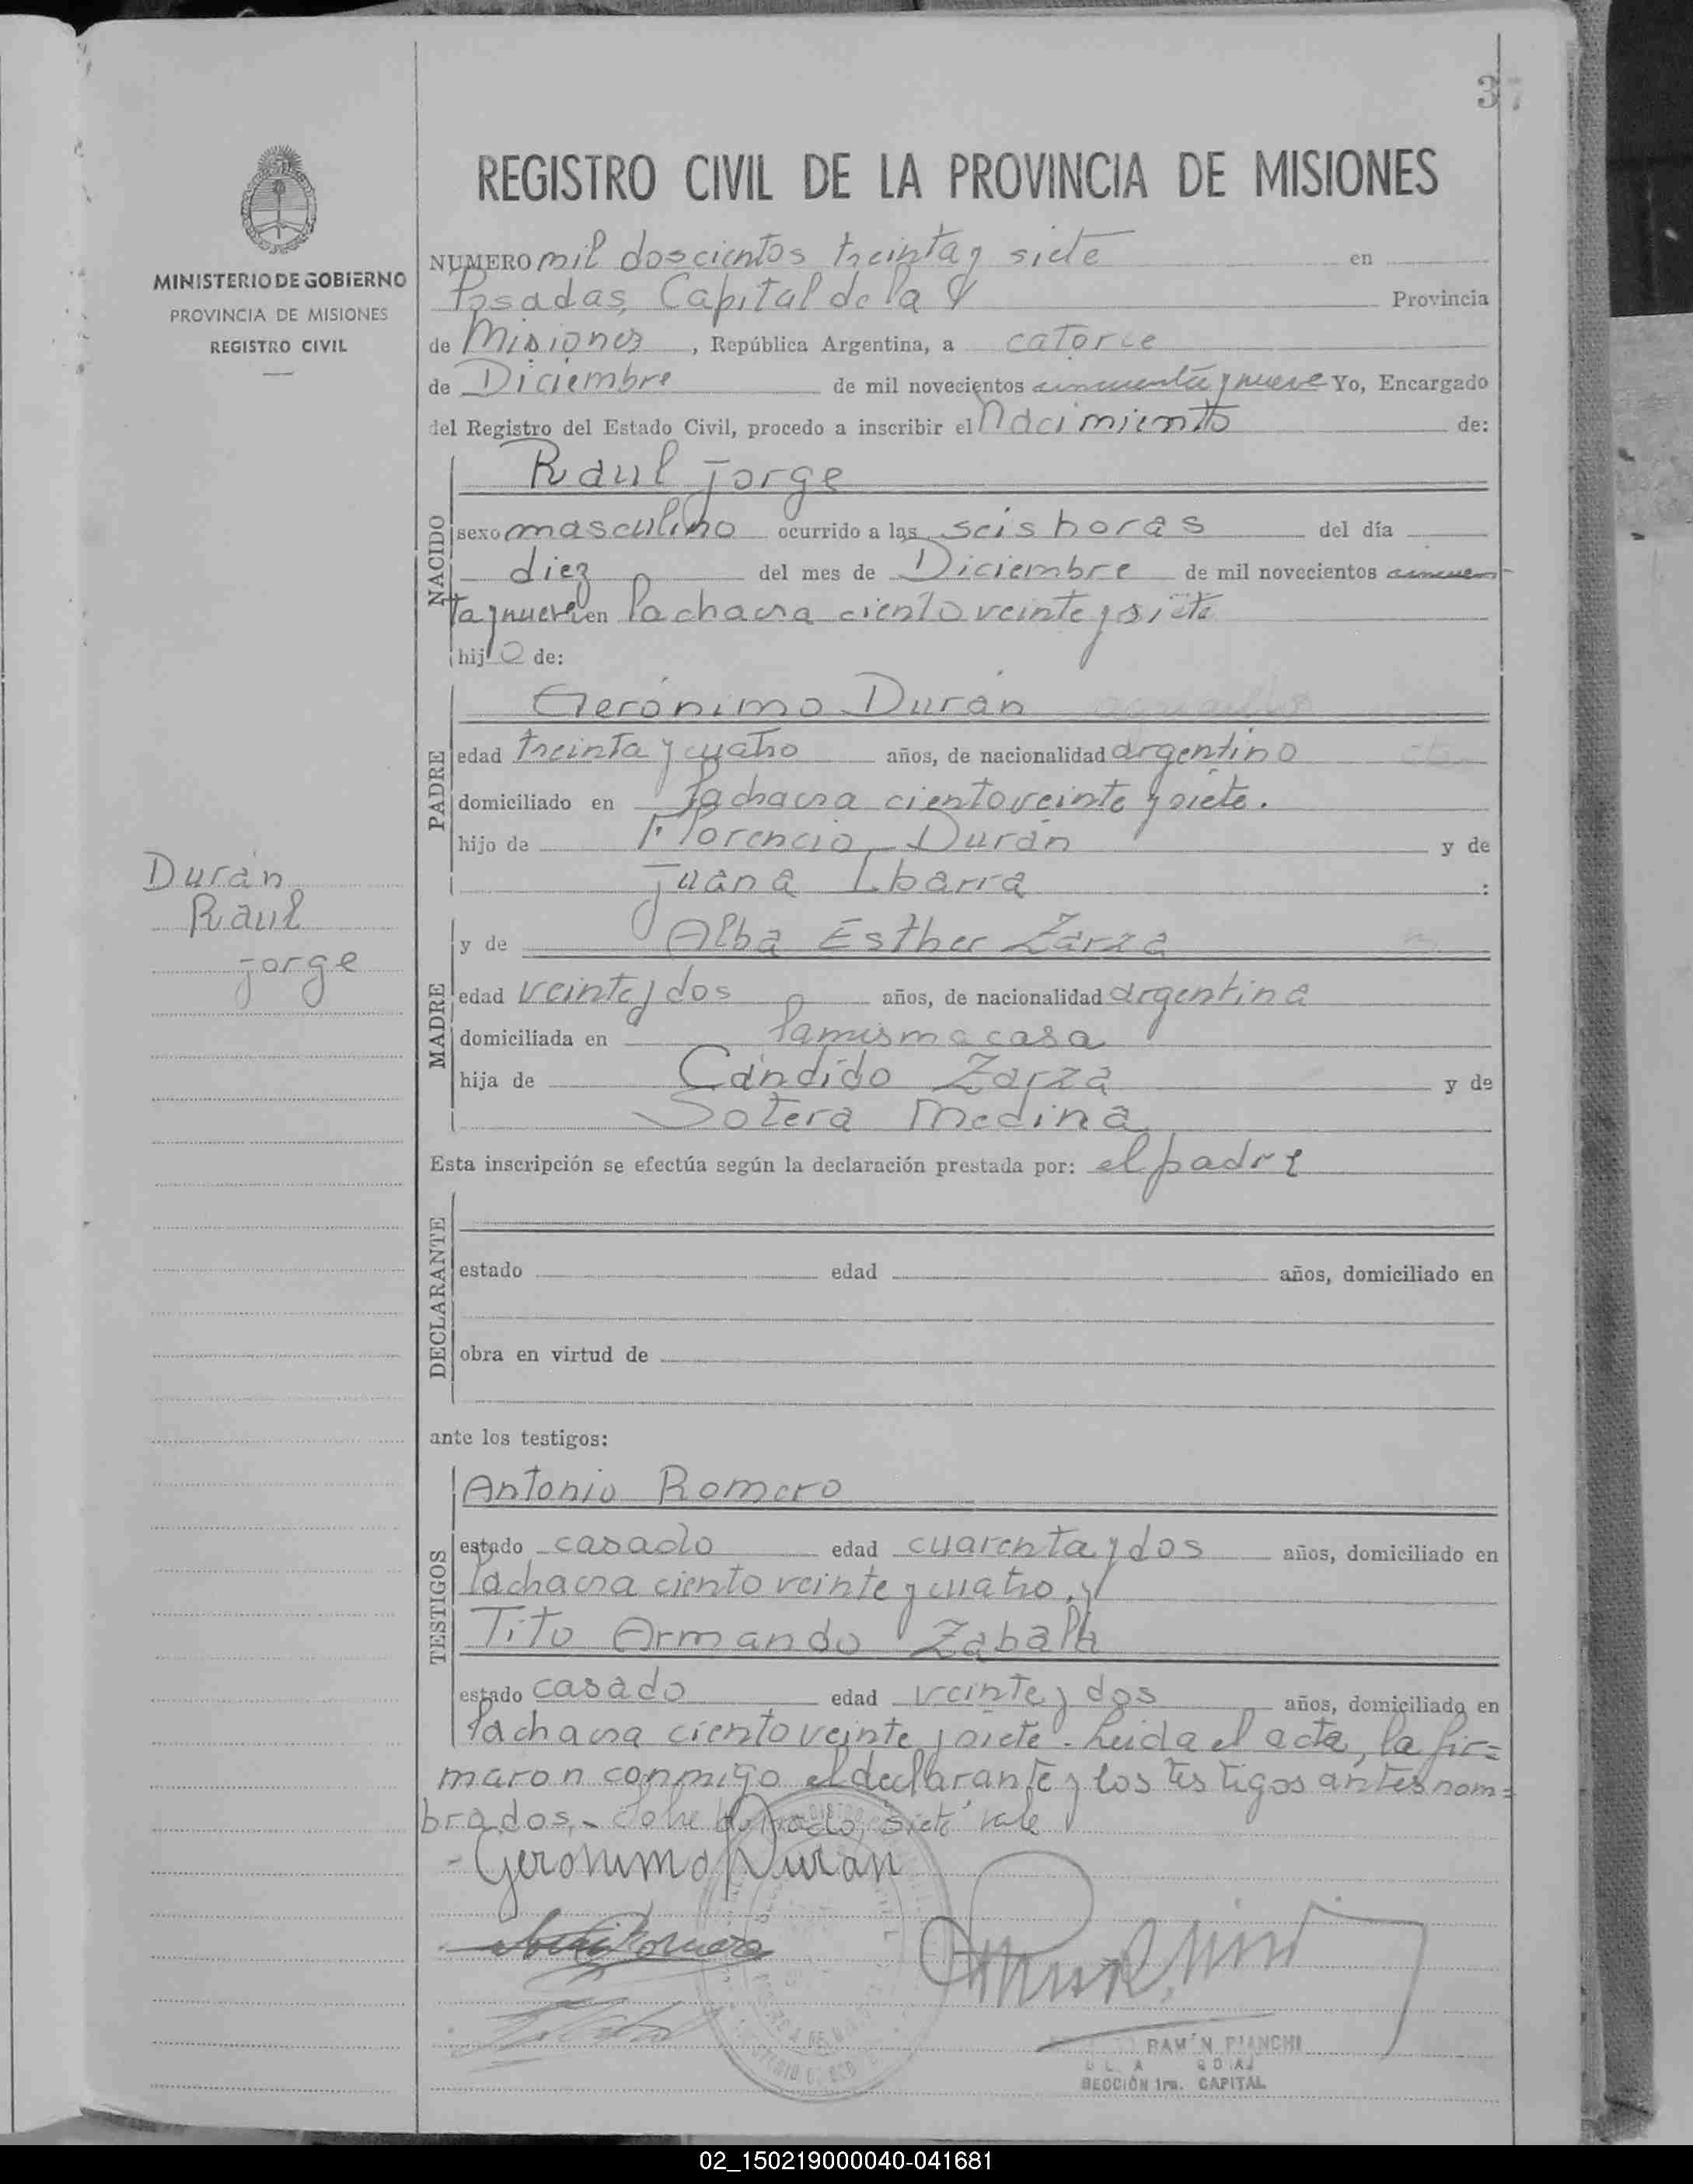 37
REGISTRO CIVIL DE LA PROVINCIA DE MISIONES
MINISTERIO DE GOBIERNO
PROVINCIA DE MISIONES
REGISTRO CIVIL
NUMERO mil doscientos treinta y siete en
Posadas, Capital de la Provincia
de Misiones, República Argentina, a catorce
de Diciembre de mil novecientos cincuenta y nueve Yo, Encargado
del Registro del Estado Civil, procedo a inscribir el Nacimiento de:
NACIDO
Raul Jorge
sexo masculino ocurrido a las seis horas del día
diez del mes de Diciembre de mil novecientos cincuen
ta y nueve en la chacra ciento veinte y siete
hijo de:
PADRE
Gerónimo Durán
edad treinta y cuatro años, de nacionalidad argentino
domiciliado en la chacra ciento veinte y siete.
hijo de Florencio Durán y de
Juana Ibarra :
Durán
Raul
Jorge
MADRE
y de Alba Esther Zarza
edad veinte y dos años, de nacionalidad argentina
domiciliada en la misma casa
hija de Cándido Zarza y de
Sotera Medina
Esta inscripción se efectúa según la declaración prestada por: el padre
DECLARANTE
estado edad años, domiciliado en
obra en virtud de
ante los testigos:
TESTIGOS
Antonio Romero
estado casado edad cuarenta y dos años, domiciliado en
la chacra ciento veinte y cuatro, y
Tito Armando Zabala
estado casado edad veinte y dos años, domiciliado en
la chacra ciento veinte y siete. Leida el acta, la fir=
maron conmigo el declarante y los testigos antes nom=
brados.- Sobre borrado, siete vale
Geronimo Duran
RAMÓN BIANCHI
SECCIÓN 1ra. CAPITAL
02_150219000040-041681